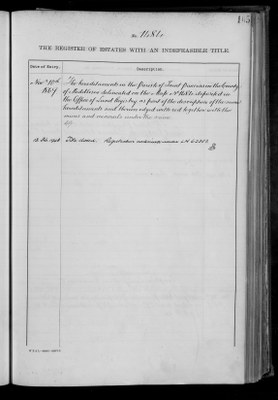 165
No. 1686
THE REGISTER OF ESTATES WITH AN INDEFEASIBLE TITLE.
Date of Entry.
Description.
Novr. 10th The hereditaments in the Parish of Saint Pancras in the County
1864 of Middlesex delineated on the Map No. 1686 deposited in
the Office of Land Registry as part of the description of the same
hereditaments and therein edged with red together with the
mines and minerals under the same
Feb. 1908 Title closed. Registration continued under LN